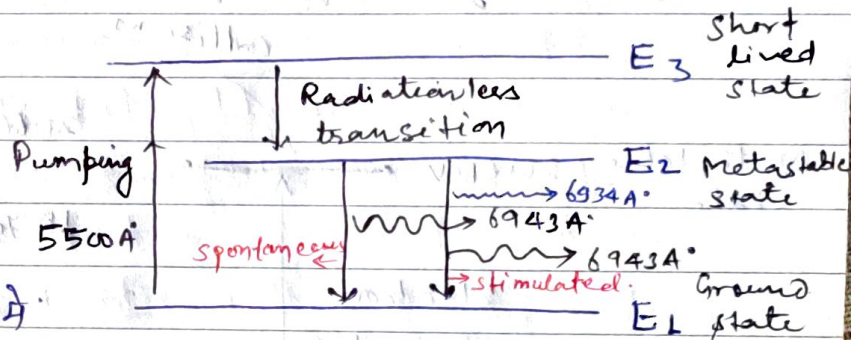 Short
E3 lived
state
Radiationless
transition
Pumping
E2 Metastable
state
6934A°
6943A°
5500A°
spontaneous
6943A°
stimulated.
Ground
E1 state